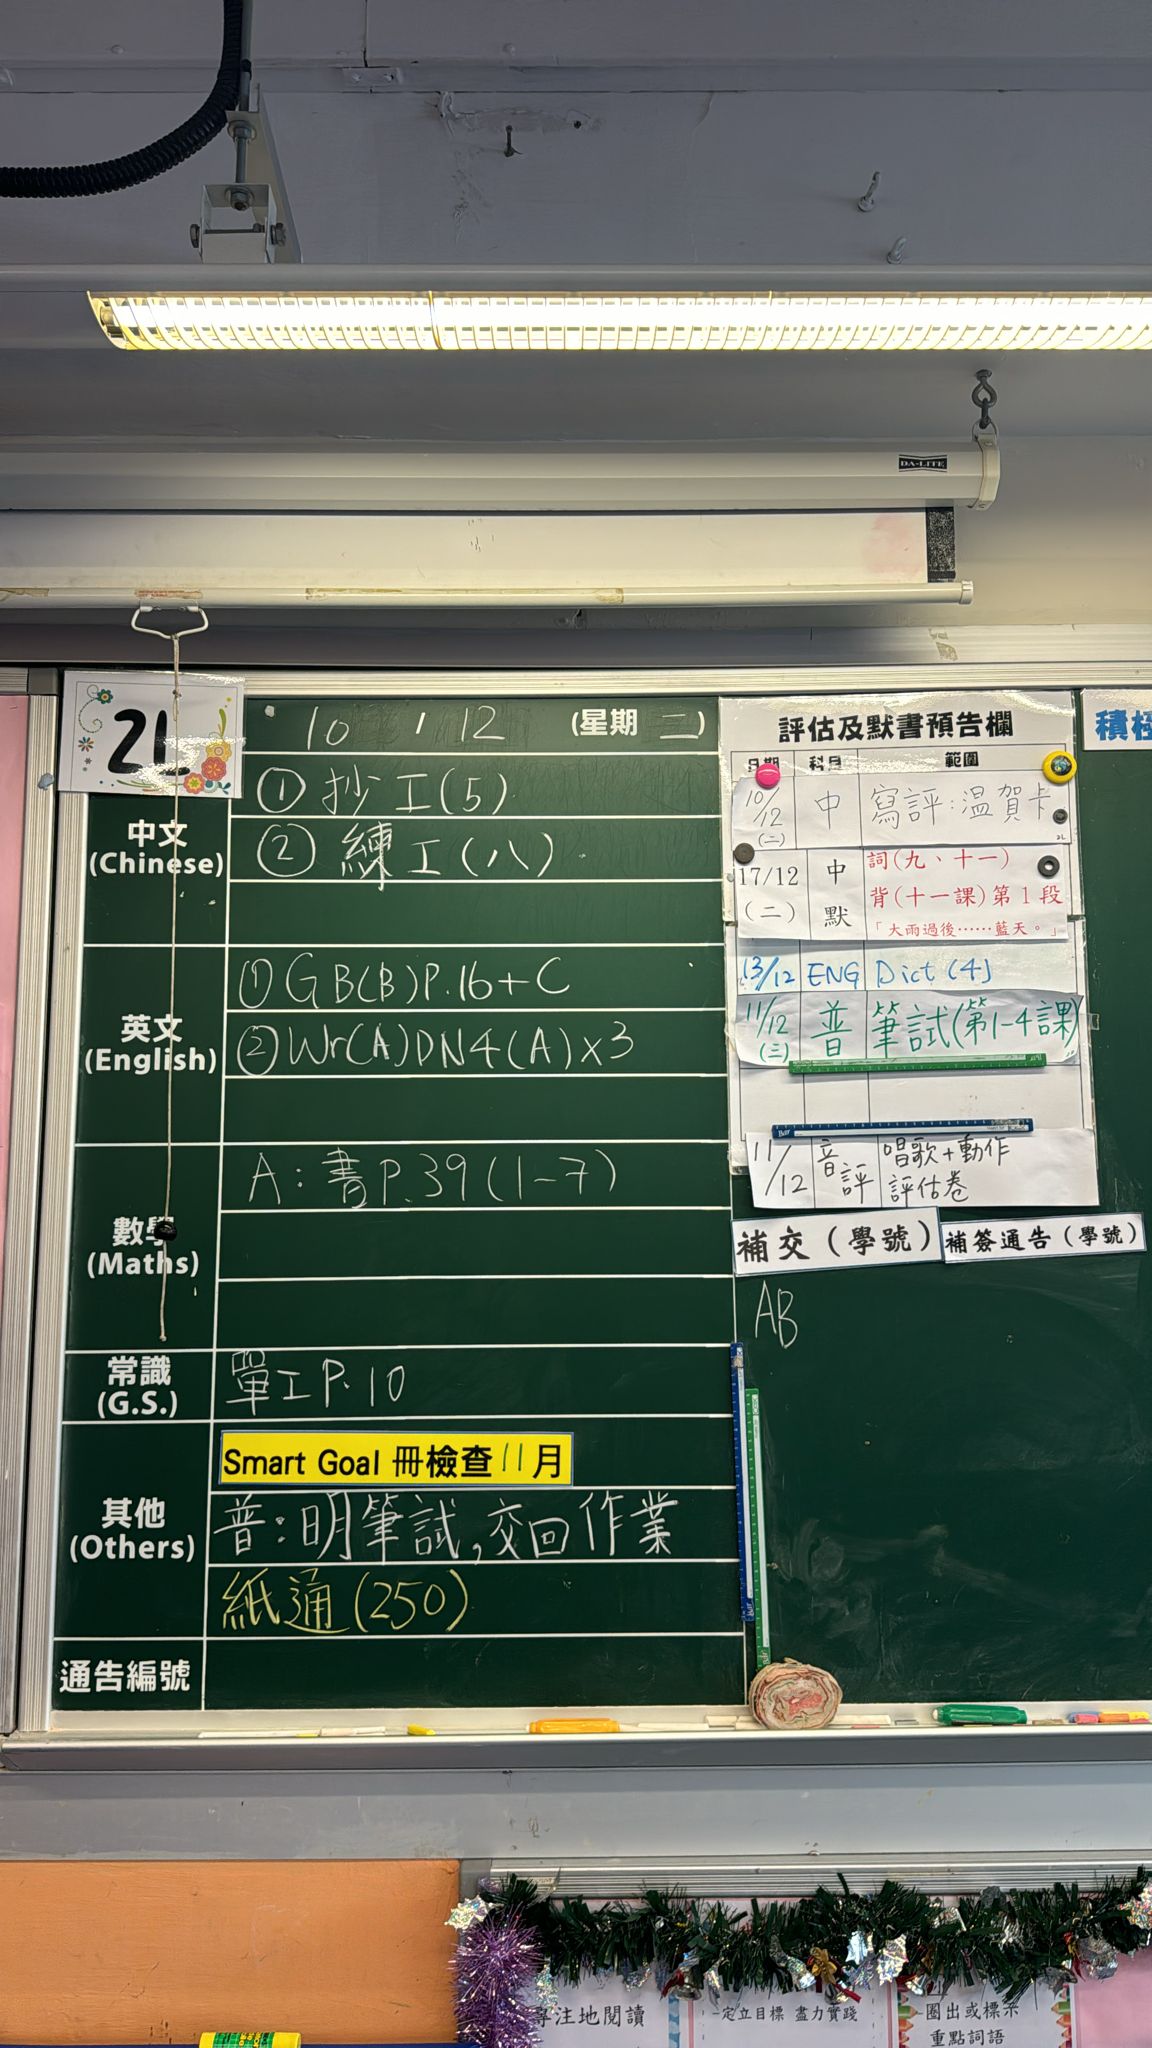 DA-LITE
2L
10 / 12 (星期 二)
中文
(Chinese)
① 抄工(5)
② 練工(八)
英文
(English)
①GB(B)P.16+C
②Wr(A)DN4(A)×3
數學
(Maths)
A:書P.39(1-7)
常識
(G.S.)
單工P.10
其他
(Others)
Smart Goal 冊檢查11月
普:明筆試,交回作業
紙通(250)
通告編號
評估及默書預告欄
日期 科目 範圍
10/12 (二) 中 寫評:溫賀卡
2L
17/12 (二) 中默 詞(九、十一)
背(十一課)第1段
「大雨過後……藍天。」
13/12 ENG Dict (4)
11/12 (三) 普 筆試(第1-4課)
11/12 音評 唱歌+動作
評估卷
補交(學號) 補簽通告(學號)
AB
積極
專注地閱讀
定立目標 盡力實踐
圈出或標示
重點詞語